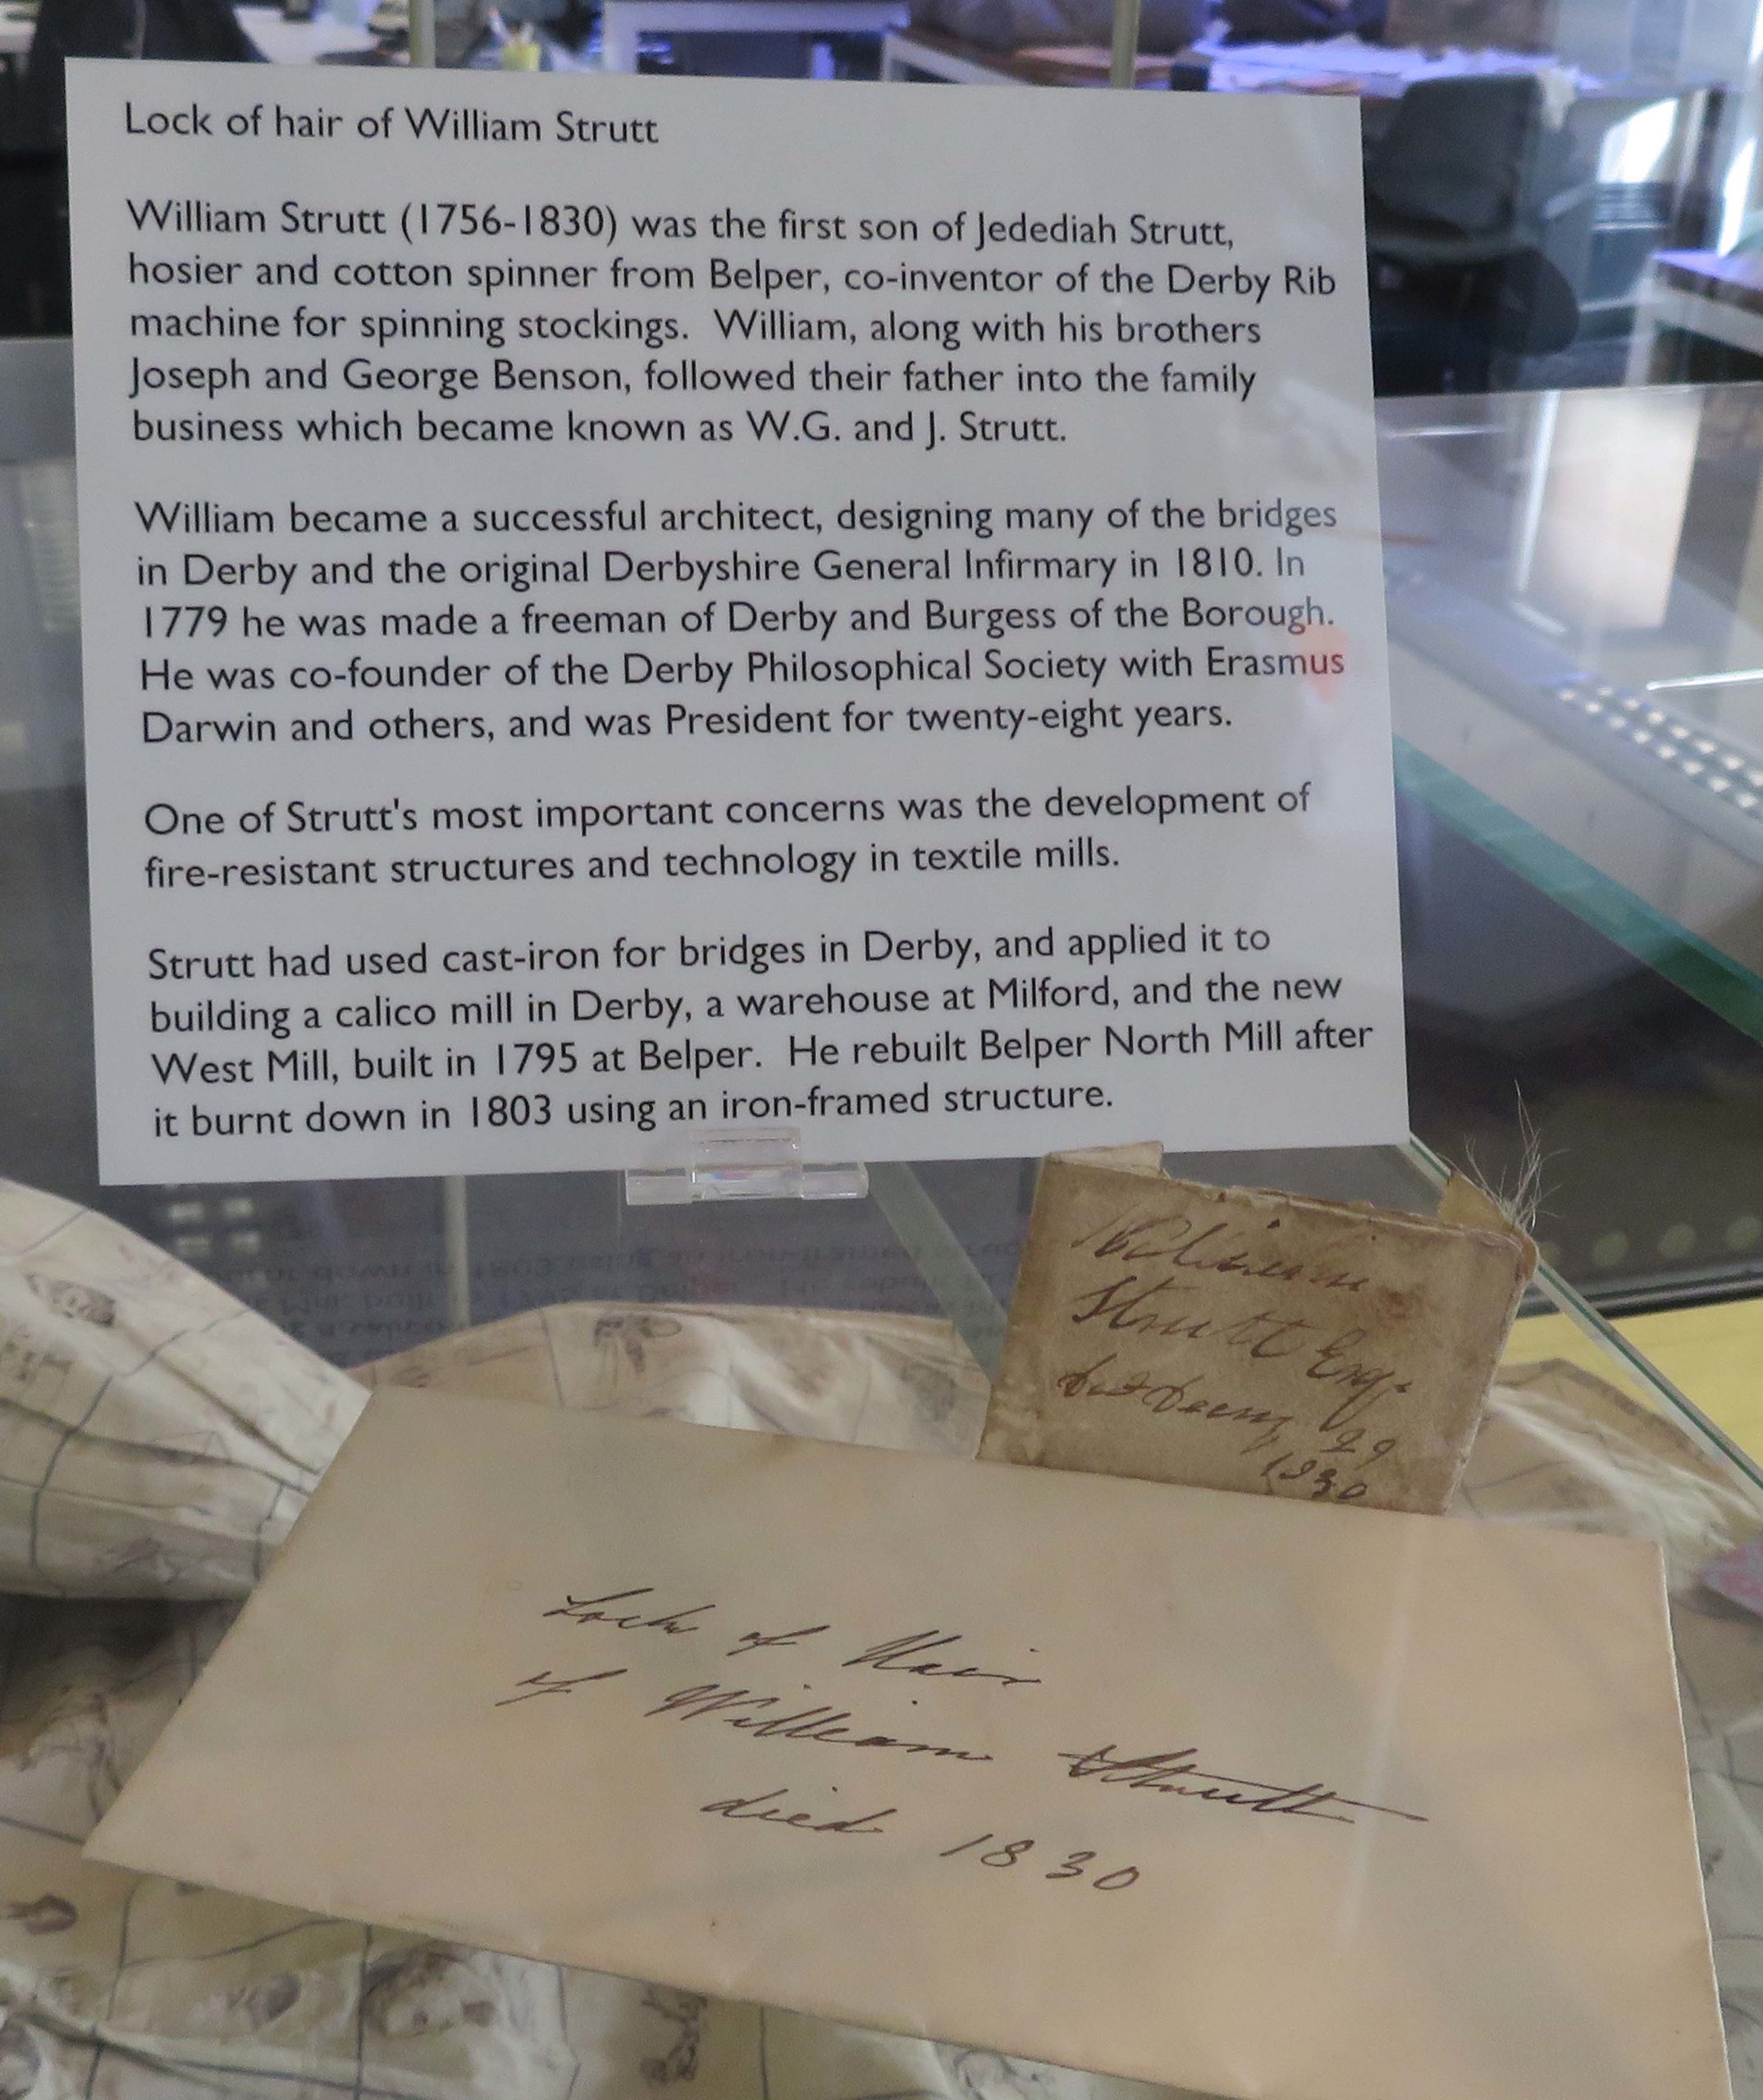 Lock of hair of William Strutt
William Strutt (1756-1830) was the first son of Jedediah Strutt,
hosier and cotton spinner from Belper, co-inventor of the Derby Rib
machine for spinning stockings. William, along with his brothers
Joseph and George Benson, followed their father into the family
business which became known as W.G. and J. Strutt.
William became a successful architect, designing many of the bridges
in Derby and the original Derbyshire General Infirmary in 1810. In
1779 he was made a freeman of Derby and Burgess of the Borough.
He was co-founder of the Derby Philosophical Society with Erasmus
Darwin and others, and was President for twenty-eight years.
One of Strutt's most important concerns was the development of
fire-resistant structures and technology in textile mills.
Strutt had used cast-iron for bridges in Derby, and applied it to
building a calico mill in Derby, a warehouse at Milford, and the new
West Mill, built in 1795 at Belper. He rebuilt Belper North Mill after
it burnt down in 1803 using an iron-framed structure.
William
Strutt Esq.
29
1830
Lock of Hair
of William Strutt
died 1830